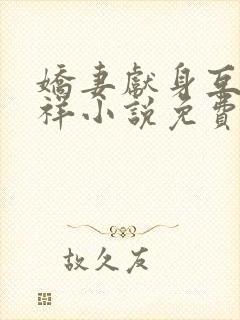 嬌妻獻身互
祥小說免費
故久友